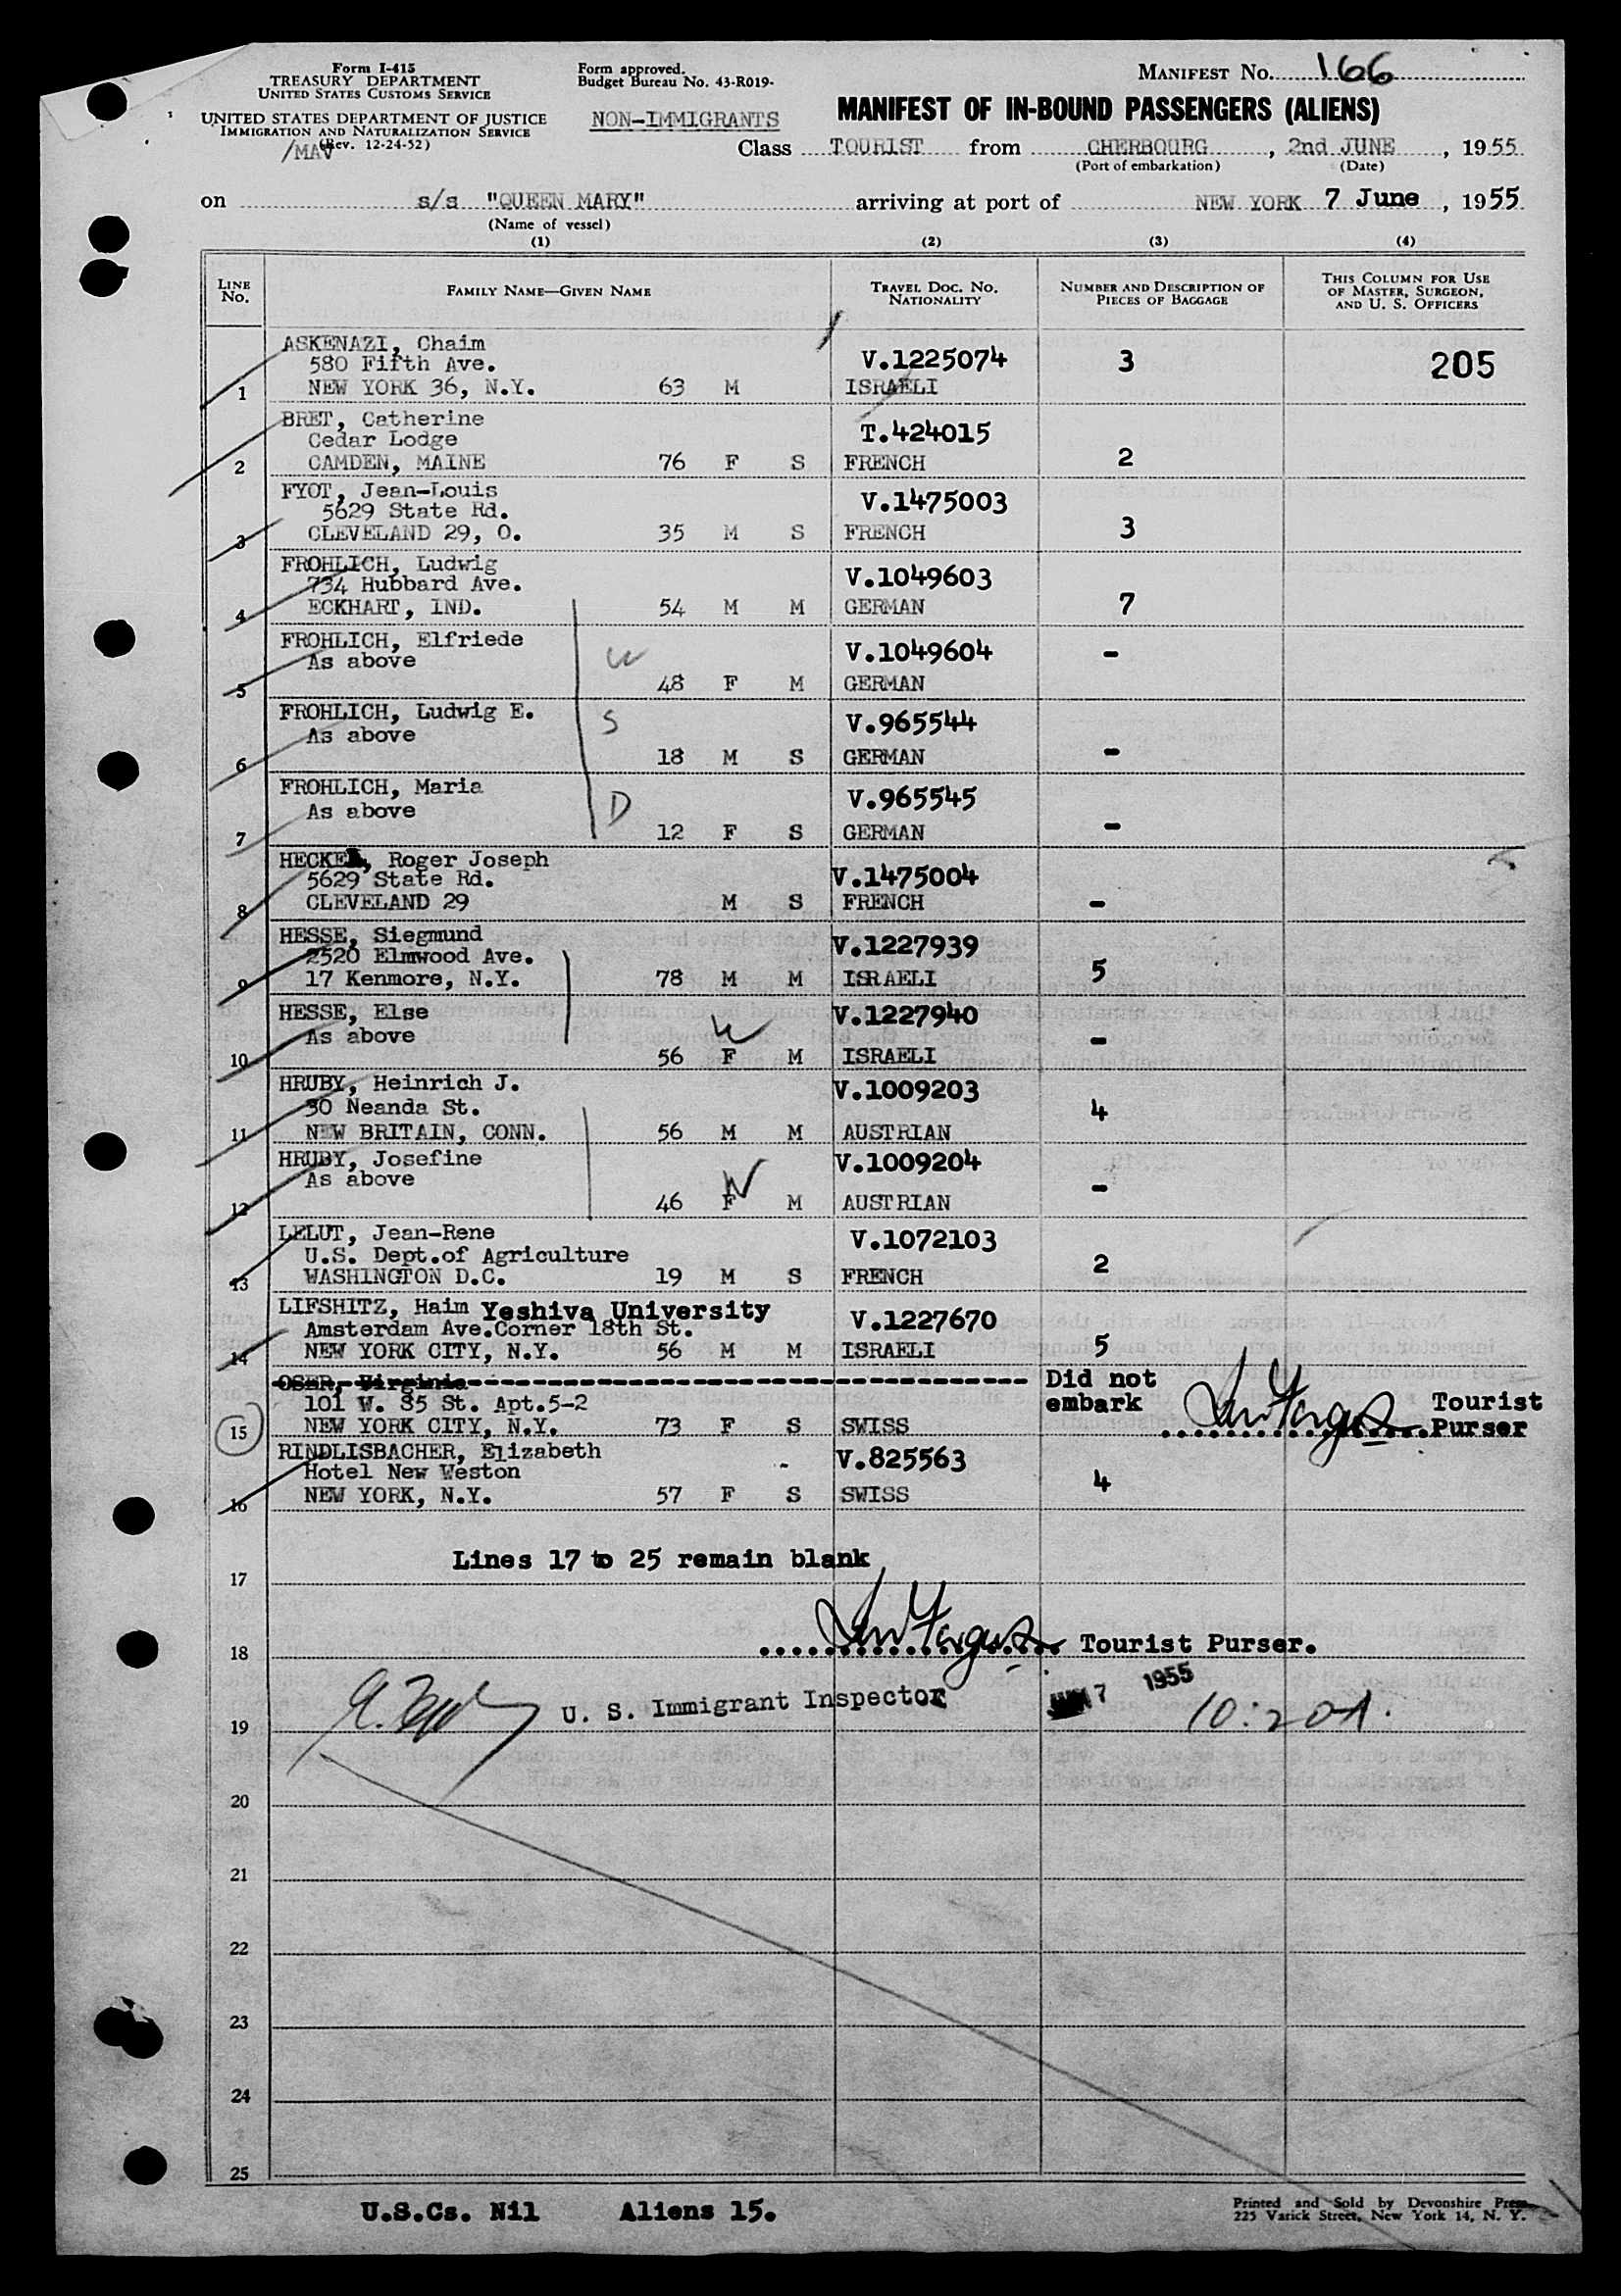 Form I-415
TREASURY DEPARTMENT
UNITED STATES CUSTOMS SERVICE
UNITED STATES DEPARTMENT OF JUSTICE
IMMIGRATION AND NATURALIZATION SERVICE
(Rev. 12-24-52)
/MAV
Form approved.
Budget Bureau No. 43-R019-
NON-IMMIGRANTS
MANIFEST NO. 166
MANIFEST OF IN-BOUND PASSENGERS (ALIENS)
Class TOURIST from CHERBOURG, 2nd JUNE, 1955
(Port of embarkation) (Date)
on s/s "QUEEN MARY" arriving at port of NEW YORK 7 June, 1955
(Name of vessel)
(1) (2) (3) (4)
LINE NO. FAMILY NAME—GIVEN NAME TRAVEL DOC. NO. NATIONALITY NUMBER AND DESCRIPTION OF PIECES OF BAGGAGE THIS COLUMN FOR USE OF MASTER, SURGEON, AND U. S. OFFICERS
ASKENAZI, Chaim
580 Fifth Ave. V.1225074 3 205
1 NEW YORK 36, N.Y. 63 M ISRAELI
BRET, Catherine
Cedar Lodge T.424015
2 CAMDEN, MAINE 76 F S FRENCH 2
FYOT, Jean-Louis
5629 State Rd. V.1475003
3 CLEVELAND 29, O. 35 M S FRENCH 3
FROHLICH, Ludwig
734 Hubbard Ave. V.1049603
4 ECKHART, IND. 54 M M GERMAN 7
FROHLICH, Elfriede
As above W V.1049604 -
5 48 F M GERMAN
FROHLICH, Ludwig E.
As above S V.965544
6 18 M S GERMAN -
FROHLICH, Maria
As above D V.965545
7 12 F S GERMAN -
Roger Joseph
5629 State Rd. V.1475004
8 CLEVELAND 29 M S FRENCH -
HESSE, Siegmund
2520 Elmwood Ave. V.1227939
9 17 Kenmore, N.Y. 78 M M ISRAELI 5
HESSE, Else V.1227940
As above W -
10 56 F M ISRAELI
HRUBY, Heinrich J. V.1009203
30 Neanda St. 4
11 NEW BRITAIN, CONN. 56 M M AUSTRIAN
HRUBY, Josefine V.1009204
As above W -
12 46 F M AUSTRIAN
LELUT, Jean-Rene V.1072103
U.S. Dept.of Agriculture
13 WASHINGTON D.C. 19 M S FRENCH 2
LIFSHITZ, Haim Yeshiva University V.1227670
Amsterdam Ave.Corner 18th St.
14 NEW YORK CITY, N.Y. 56 M M ISRAELI 5
OSER, Virginia Did not
101 W. 85 St. Apt.5-2 embark Tourist
15 NEW YORK CITY, N.Y. 73 F S SWISS Purser
RINDLISBACHER, Elizabeth V.825563
Hotel New Weston 4
16 NEW YORK, N.Y. 57 F S SWISS
Lines 17 to 25 remain blank
17
18 Tourist Purser.
U. S. Immigrant Inspector 7 1955 10:20A.
19
20
21
22
23
24
25
U.S.Cs. Nil Aliens 15.
Printed and Sold by Devonshire Press
225 Varick Street, New York 14, N. Y.